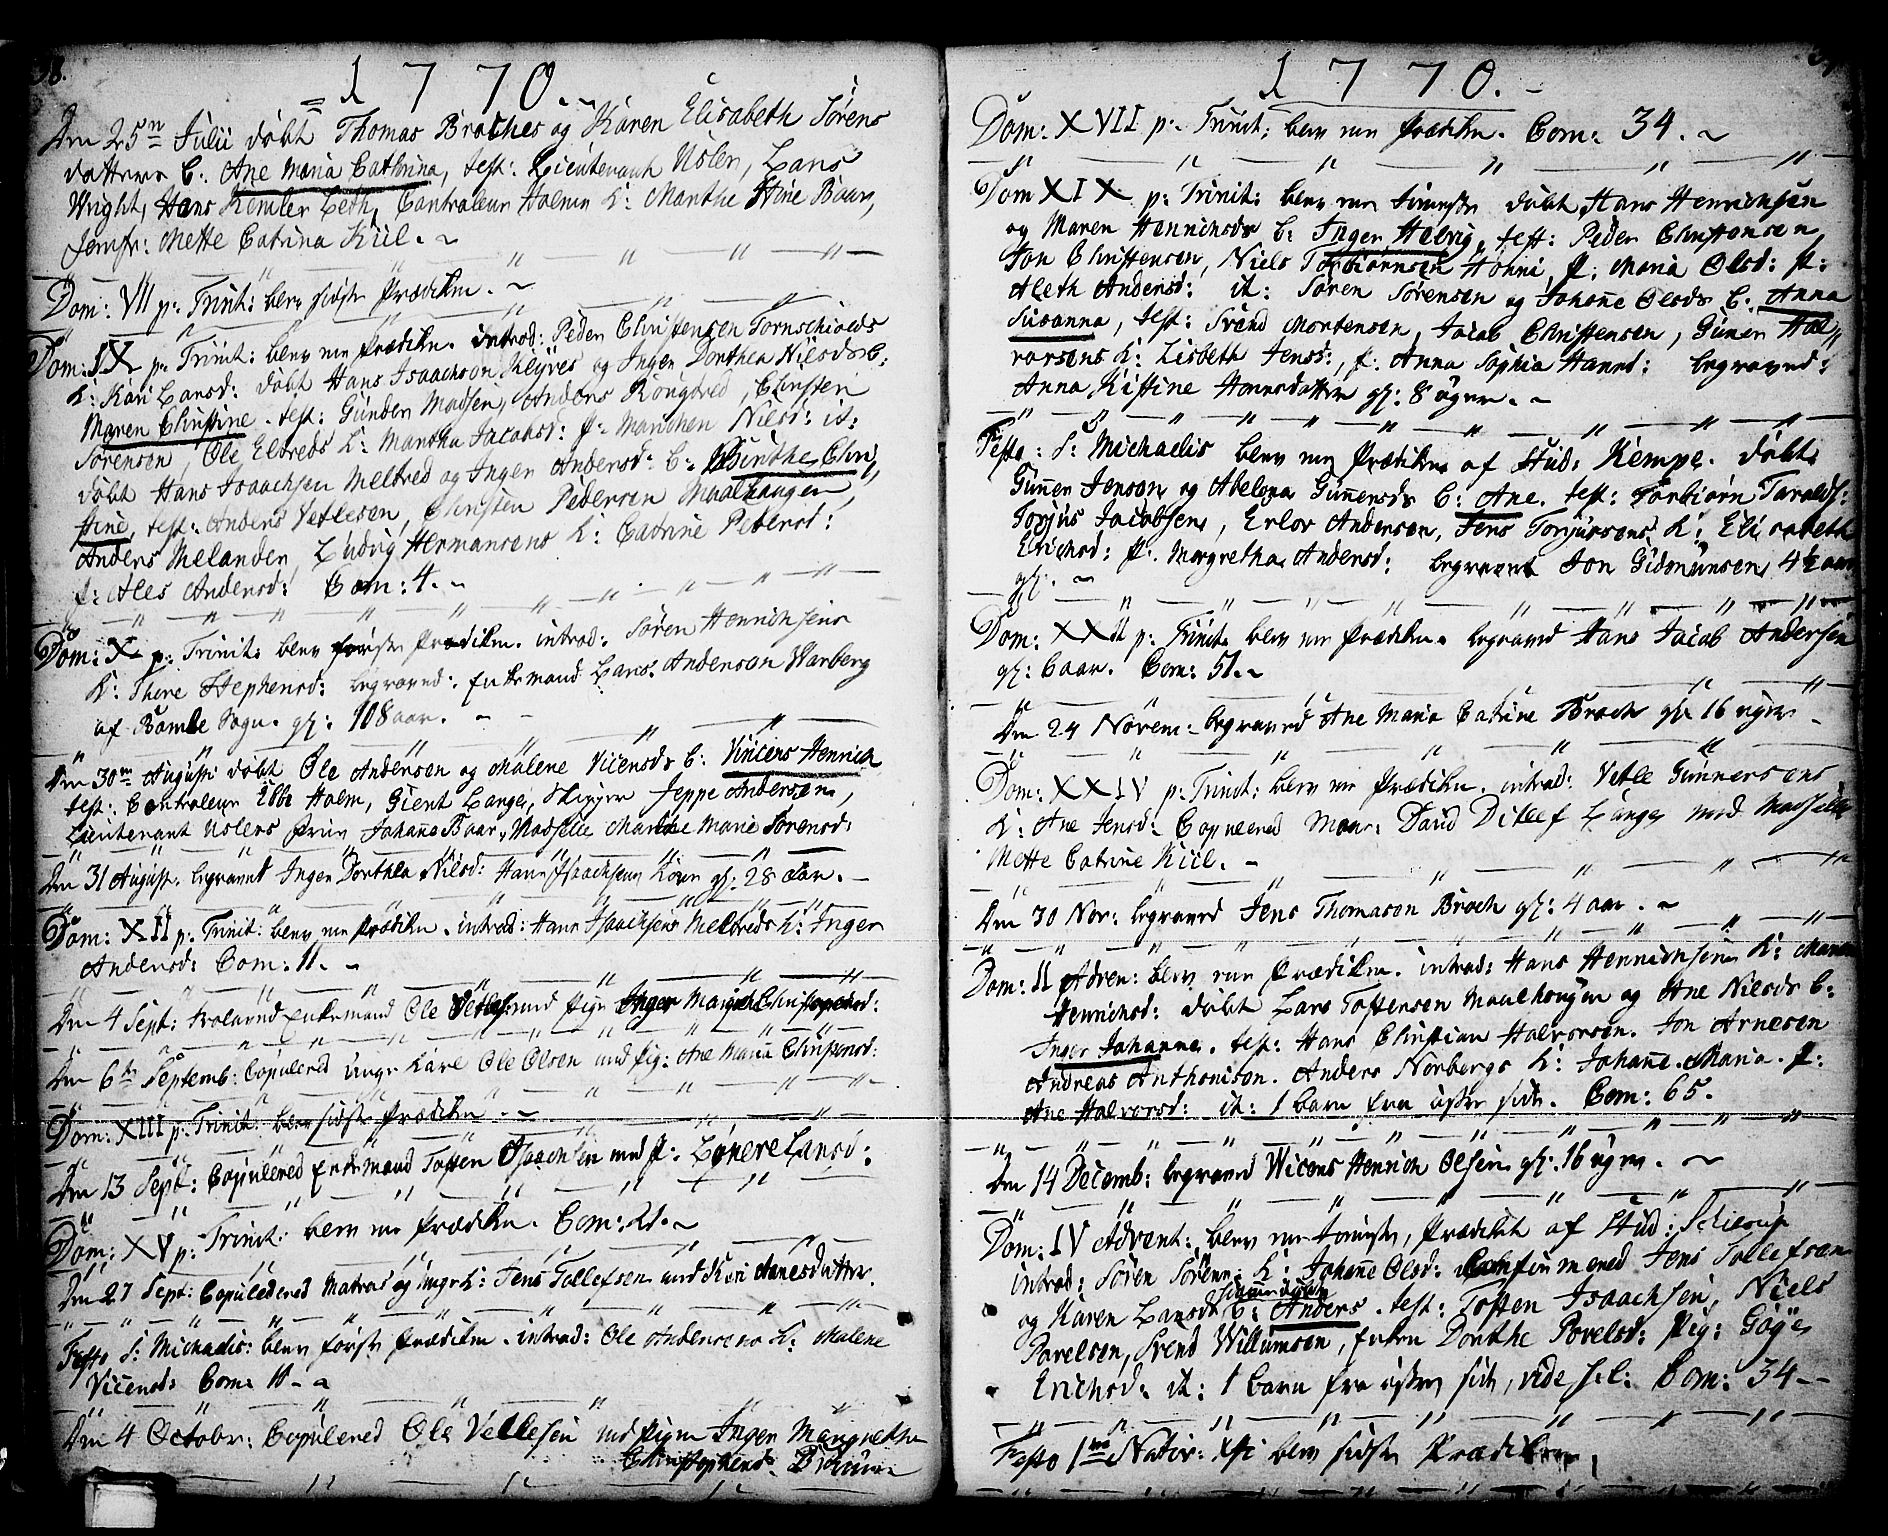 38.
1770.
Den 25n Julii døbt Thomas Broches og Karen Elisabeth Sørens
datters B: Ane Maria Cathrina, test: Lieutenant Uslen, Lars
Wright, Hans Kemler Leth, Contraleur Holmen K: Marthe Stine Baar,
Jomfr: Mette Catrina Kiil.
Dom: VII p: Trinit: blev sidste Prædiken.
Dom: IX p: Trinit: blev een Prædiken. introd: Peder Christensen Tornschiolds
K: Kari Larsd: døbt Hans Isaachson Kleyves og Inger Dorthea Nilsds B:
Maren Christine. test: Gunder Madsen, Anders Kongsred, Christen
Sørensen, Ole Eldreds K: Martha Jacobsd: P: Marichen Nilsd: it:
døbt Hans Isaachsen Meldred og Inger Andersd: B: Birthe Chri
stine, test: Anders Vetlesen, Christen Pedersen Maalhaugen,
Anders Melanden, Ludvig Hermansens K: Catrine Petersd:
P: Ales Andersd: Com: 4.
Dom: X p: Trinit: blev første Prædiken. introd: Søren Henrichsens
K: There Stephensd: begraved: Enkemand Lars Anderson Warberg
af Bamble Sogn. gl: 108 aar.
Den 30m Augusti døbt Ole Andersen og Malene Vicensds B: Vincens Henrich
test: Contraleur Ebbe Holm, Gient Lange, Skipper Jeppe Andersen,
Lieutenant Uslens Frue Johañe Baar, Madselle Marthe Marie Sørensd:
Den 31 August. begravet Inger Dorthea Nilsd: Hans Isaachsens Kone gl: 28 aar.
Dom: XII p: Trinit: blev een Prædiken. introd: Hans Isaachsens Meldreds K: Inger
Andersd: Com: 11.
Den 4 Sept: trolovet Enkemand Ole Vetles: med Pige Inger Margrethe Christophersd:
Den 6te Septemb: Copulered unge Karl Ole Olsen med Pig: Ane Maria Christensd:
Dom: XIII p: Trinit: blev sidste Prædiken.
Den 13 Sept: Copulered Enkemand Toften Isaachsen med P: Lønere Larsd:
Dom: XV p: Trinit: blev een Prædiken. Com: 21.
Den 27 Sept: Copulered Matros og unge K: Jens Tollefsen med Kari Arnesdatter.
Festo S: Michaelis: blev første Prædiken. introd: Ole Andersens K: Malene
Vicensd: Com: 11.
Den 4 October: Copulered Ole Vetlesen med Pigen Inger Margrethe
Christophersd:
1770.
Dom: XVII p: Trinit: blev een Prædiken. Com: 34.
Dom XIX p: Trinit: blev een tieneste døbt Hans Henrichsen
og Maren Henrichsds B: Inger Helvig, test: Peder Christensen,
Jon Christensen, Niels Torbiørnsen Høhni, P: Maria Olsd: P:
Aleth Andersd: it: Søren Sørensen og Johañe Olsds B: Anna
Susanna, test: Svend Mortensen, Jacob Christensen, Guñer Hal
vorsens K: Lisbeth Jensd:, P: Anna Sophia Hansd: begraved:
Anna Kistine Hansdatter gl: 8 uger.
Festo: S: Michaelis blev een Prædiken af Stud: Kempe. døbt
Guñer Jenson og Abelona Guñersds B: Ane. test: Torbiørn Taralds:
Torjus Jacobsen, Erlov Anderson, Jens Torjussens K: Elisabeth
Erichsd: P: Margretha Andersd: begravet Jon Gidmunsen 4½ aar
gl:
Dom: XXII p: Trinit. blev een Prædiken. begraved Hans Jacob Andersen
gl: 6 aar. Com: 51.
Den 24 Novem: begraved Ane Maria Catrine Broch gl: 16 uger
Dom: XXIV p: Trinit: blev een Prædiken. introd: Vetle Guñersens
K: Ane Jensd: Copulered Mons: David Ditlef Lange med Madselle
Mette Catrine Kiil.
Den 30 Nov: begraved Jens Thomason Broch gl: 4 aar.
Dom: II Adven: blev een Prædiken. introd: Hans Henrichsens K: Maren
Henrichsd: døbt Lars Toftensen Maalhougen og Ane Nilsds B:
Inger Johanne. test: Hans Christian Halvorsen. Jon Arnesen
Andreas Anthonison. Anders Norbergs K: Johañe Maria. P:
Ane Halvorsd: it: 1 barn fra østre side. Com: 65.
Den 14 Decemb: begraved Wicens Henrich Olsen gl: 16 uger.
Dom: IV Advent: blev een tieneste, Prædiket af Stud: Schierup
introd: Søren Sørens: K: Johañe Olsd: Confirmered Jens Tollefsen
og Karen Larsds B: Anders. test: Toften Isaachsen, Niels
Povelsen, Svend Willumsen, Enken Dorthe Povelsd: Pig: Gøge
Erichsd: it: 1 barn fra østre side, vide sel: Com: 34
Festo 1mo Nativ: Xsti blev sidste Prædiken